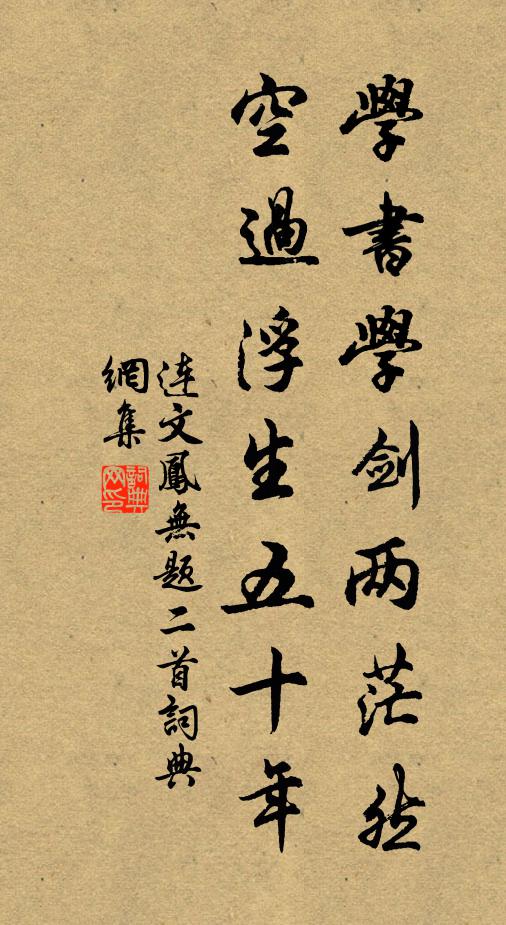 學書學劍两茫然
空過浮生五十年
連文鳳無題二首詞典
網集
詞典
网印